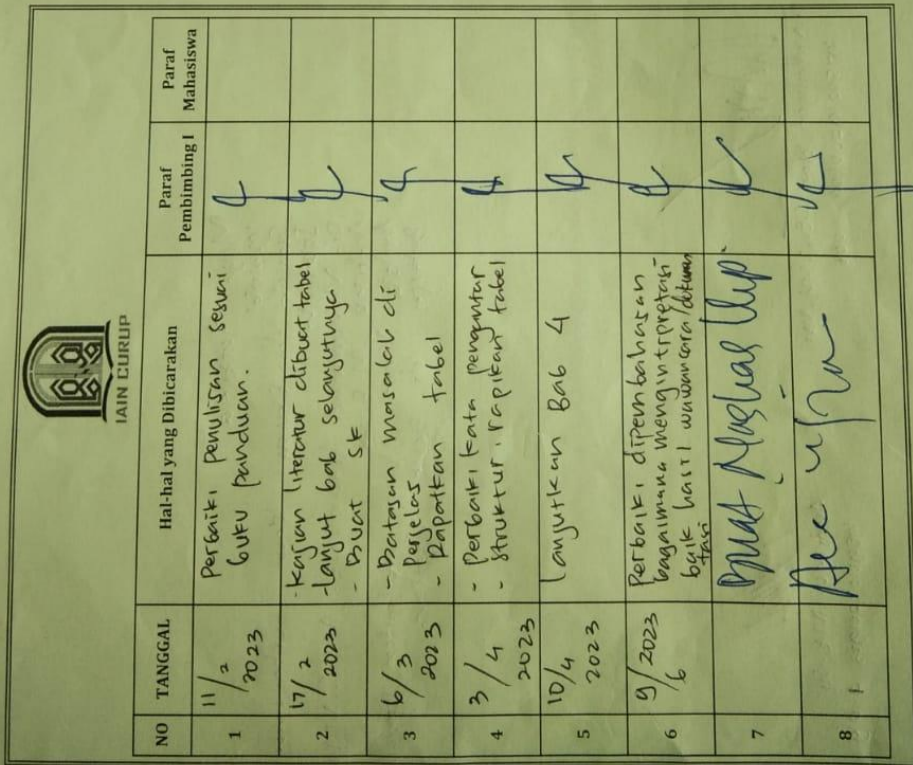 IAIN CURUP
NO TANGGAL Hal-hal yang Dibicarakan Paraf Pembimbing I Paraf Mahasiswa
1 11/2 2023 Perbaiki penulisan sesuai
buku panduan.
2 17/2 2023 - Kajian literatur dibuat tabel
- lanjut bab selanjutnya
- Buat SK
3 6/3 2023 - Batasan masalah di
perjelas
- Rapatkan tabel
4 3/4 2023 - Perbaiki kata pengantar
- struktur, rapikan tabel
5 10/4 2023 lanjutkan Bab 4
6 9/6 2023 Perbaiki dipembahasan
bagaimana mengintrpretasi
baik hasil wawancara/dokumen
tasi
7 Buat
8 Acc